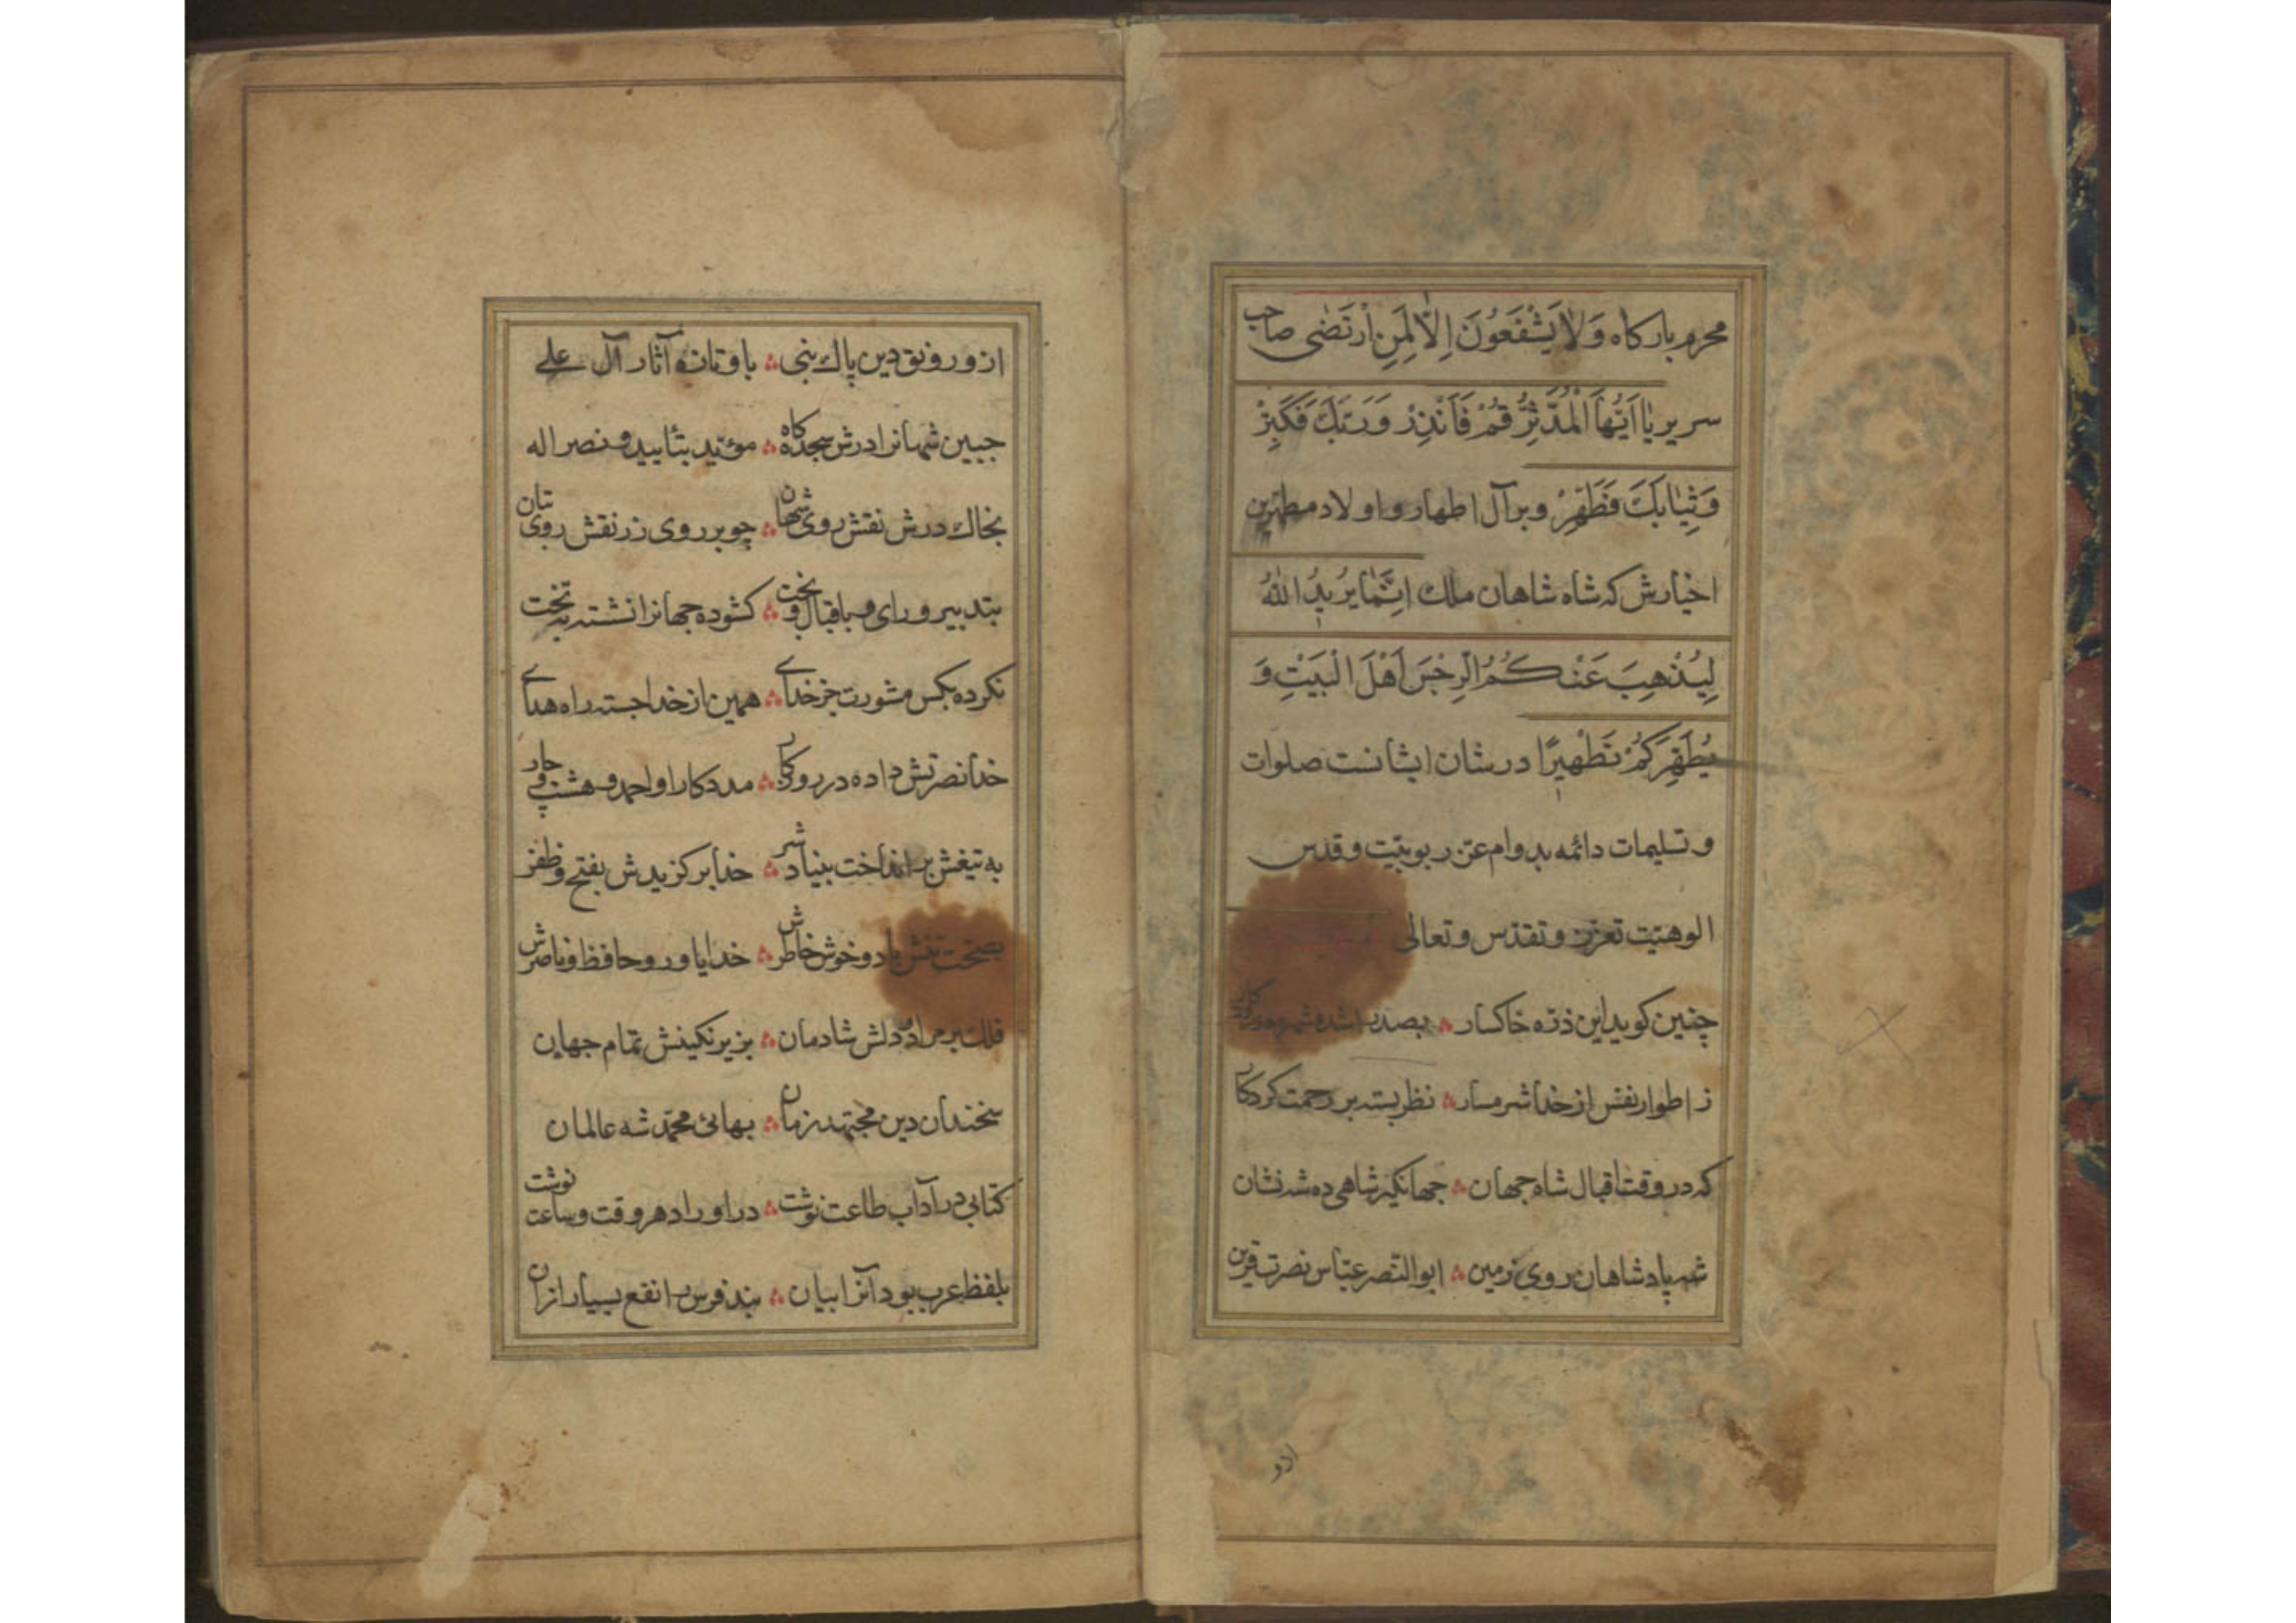 محرم بارکاه وَلَا یَشْفَعُونَ اِلَّا لِمَنِ ارْتَضٰی صاحب
سریر یٰا اَیُّهَا الْمُدَّثِّرُ قُمْ فَاَنْذِرْ وَرَبَّكَ فَكَبِّرْ
وَثِیٰابَكَ فَطَهِّرْ وبر آل اطهار و اولاد مطهرین
اخیارش که شاه شاهان ملك اِنَّمٰا یُرِیدُ اللّٰهُ
لِیُذْهِبَ عَنْكُمُ الرِّجْسَ اَهْلَ الْبَیْتِ وَ
یُطَهِّرَكُمْ تَطْهِیرًا در شان ایشانست صلوات
و تسلیمات دائمه بدوام عزّ ربوبیّت و قدس
الوهیّت تعزز و تقدّس و تعالی
چنین کوید این ذرّه خاکسار ؞ بصد
ز اطوار نفس از خدا شرمسار ؞ نظر بسته بر رحمت کردکار
که در وقت اقبال شاه جهان ؞ جهانکیر شاهی ده شه نشان
شه پادشاهان روی زمین ؞ ابو النّصر عبّاس نصرت قرین
از و رونق دین پاك نبی ؞ باو تازه آثار آل علی
جبین شهانرا درش سجده کاه ؞ مؤیّد بتأیید و نصر اله
بخاك درش نقش روی شهان ؞ چو بر روی زر نقش روی بتان
بتدبیر و رای و باقبال و بخت ؞ کشوده جهانرا نشسته به تخت
نکرده بکس مشورت جز خدای ؞ همین از خدا جسته راه هدای
خدا نصرتش داده در روزکار ؞ مددکار او احمد و هشت و چار
به تیغش بر انداخت بنیاد شر ؞ خدا برکزیدش بفتح و ظفر
بصحّت تنش باد و خوش خاطرش ؞ خدا یاور و حافظ و ناصرش
فلك بر مراد دلش شادمان ؞ بزیر نکینش تمام جهان
سخندان دین مجتهد زمان ؞ بهائی محمّد شه عالمان
کتابی در آداب طاعت نوشت ؞ در اوراد هر وقت و ساعت نوشت
بلفظ عرب بود آنرا بیان ؞ نبد فرس را نفع بسیار ازان